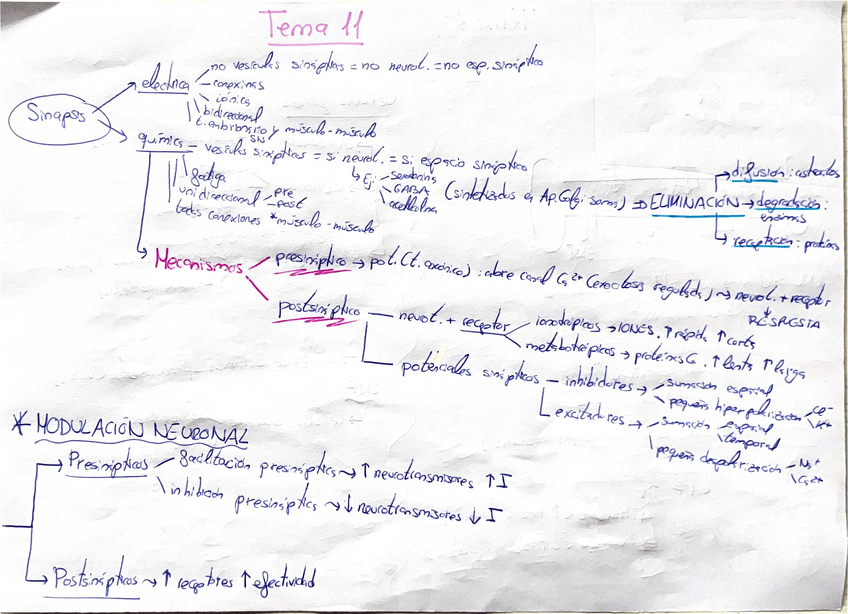 Tema 11
Sinapsis
electrica
no vesículas sinápticas = no neurot. = no esp. sináptico
conexinas
iónica
bidireccional
t. embrionario y músculo-músculo
química – vesículas sinápticas = si neurot. = si espacio sináptico
SN
fatiga
unidireccional
pre
post
todas conexiones *músculo-músculo
Ej:
serotonina
GABA
acetilcolina
(sintetizados en Ap. Golgi-soma) ⇒ ELIMINACIÓN
→ difusión: astrocitos
→ degradación: enzimas
→ recaptación: proteínas
Mecanismos
presináptico → pot. (t. axónico): abre canal Ca²⁺ (exocitosis regulada) → neurot. + receptor
↓
RESPUESTA
postsináptico
neurot. + receptor
ionotrópicos → IONES. ↑ rápida ↑ corta
metabotrópicos → proteínas G. ↑ lenta ↑ larga
potenciales sinápticos
inhibidores →
sumación espacial
pequeña hiperpolarización
Cl⁻
K⁺
excitadores →
sumación
espacial
temporal
pequeña despolarización
Na⁺
Ca²⁺
* MODULACIÓN NEURONAL
Presinápticos
facilitación presináptica → ↑ neurotransmisores ↑ I
inhibición presináptica → ↓ neurotransmisores ↓ I
Postsinápticos → ↑ receptores ↑ efectividad